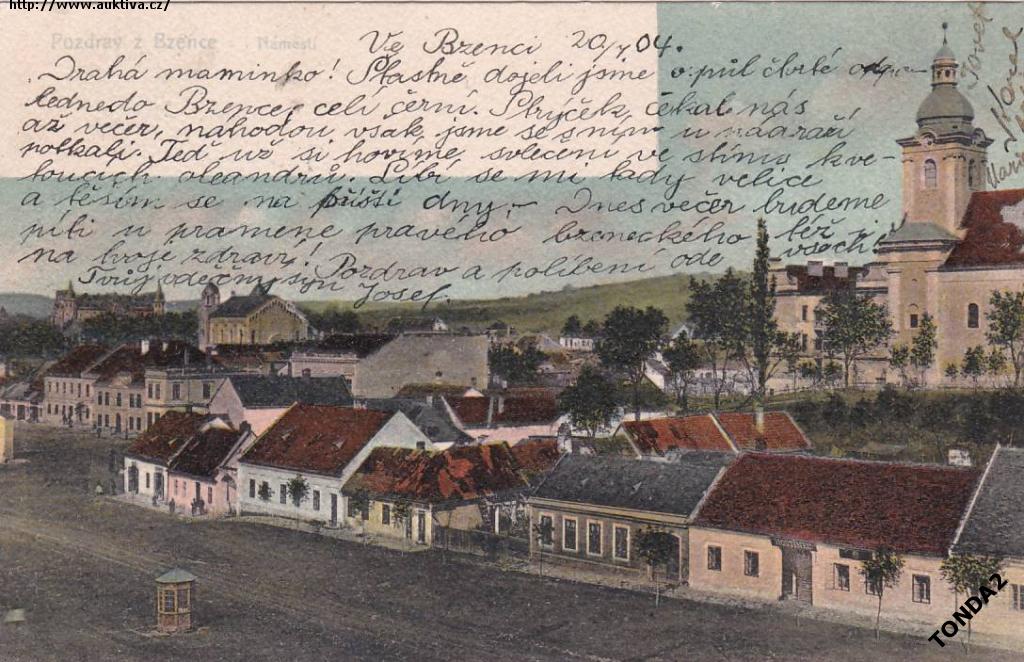 http://www.auktiva.cz/
Pozdrav z Bzence Náměstí
Ve Bzenci 20/ 04.
Drahá maminko! Šťastně dojeli jsme o půl čtvrté
do Bzence, celí černí. Strýček čekal nás
až večer, náhodou však jsme se s ním u nádraží
potkali. Teď už si hovíme svlečeni ve stínu kve-
toucích oleandrů. Líbí se mi tady velice
a těším se na příští dny. – Dnes večer budeme
píti u pramene pravého bzeneckého též
na Tvoje zdraví!
Tvůj vděčný syn Josef.
Pozdrav a políbení ode všech
TONDA2